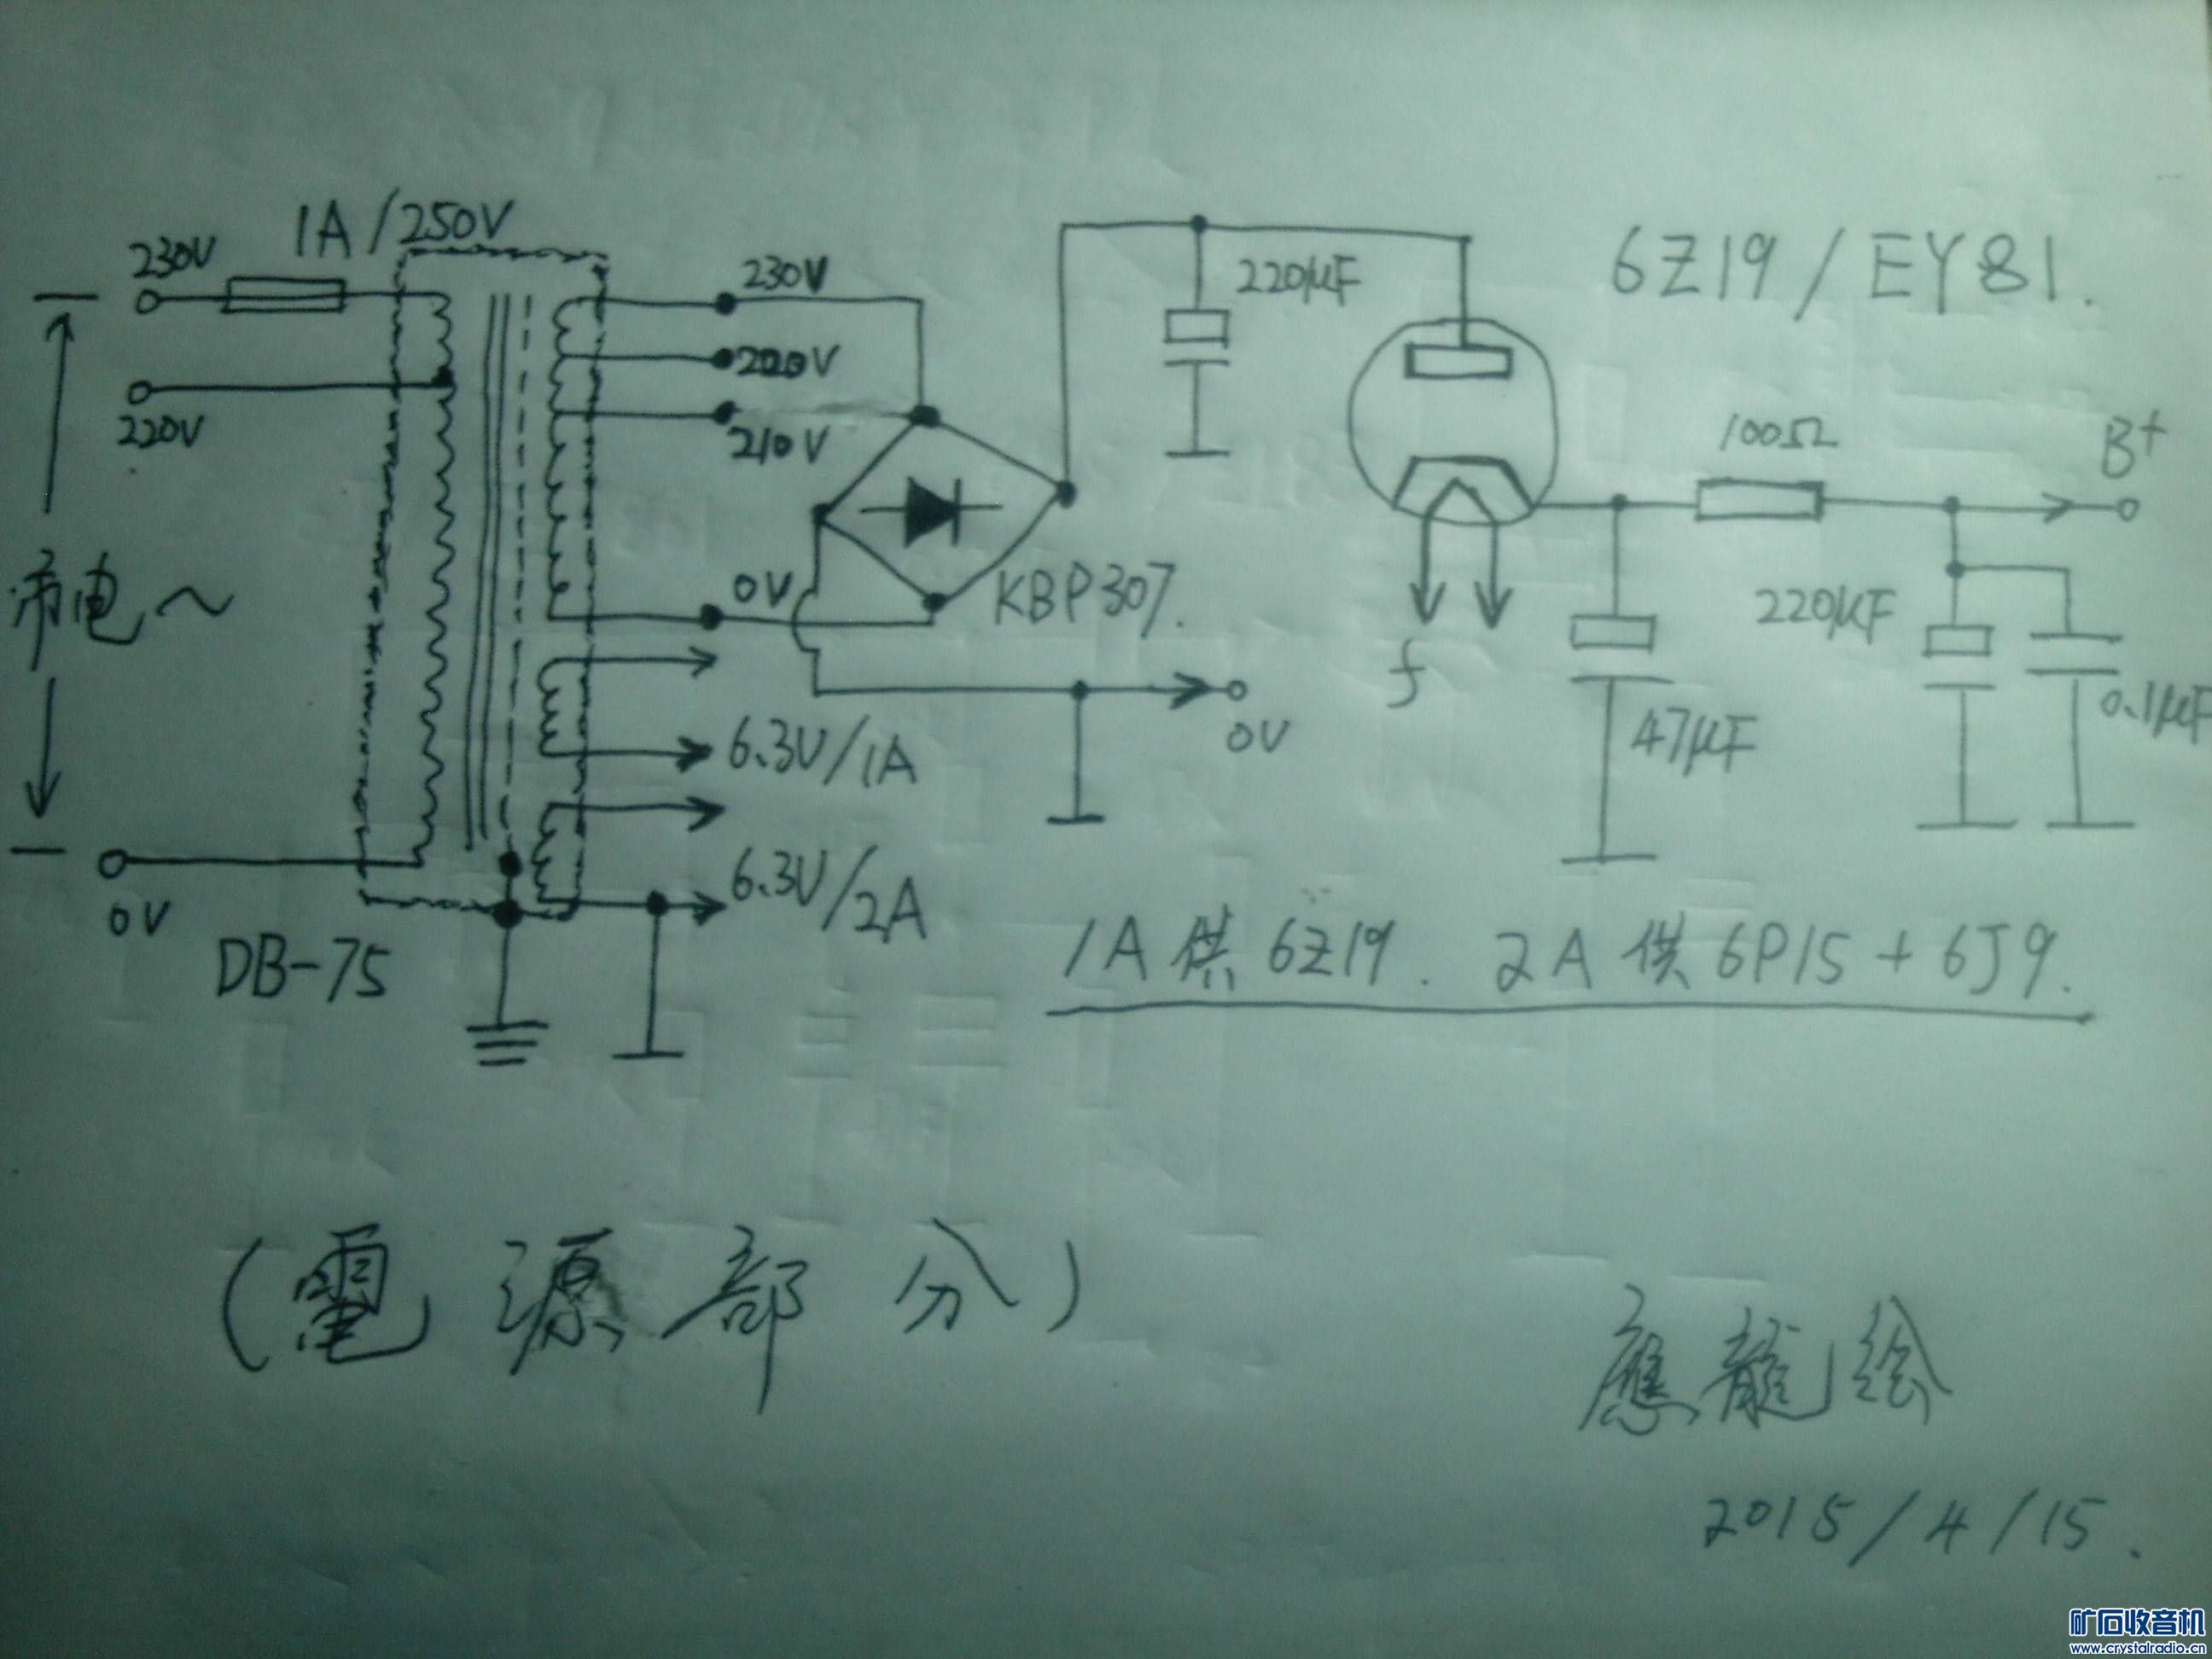 1A/250V
230V
220V
市电~
0V
DB-75
230V
220V
210V
0V
6.3V/1A
6.3V/2A
KBP307.
0V
220μF
6Z19/EY81.
f
100Ω
B+
47μF
220μF
0.1μF
1A 供 6Z19. 2A 供 6P15+6J9.
(電源部分)
應龍绘
2015/4/15.
矿石收音机
www.crystalradio.cn